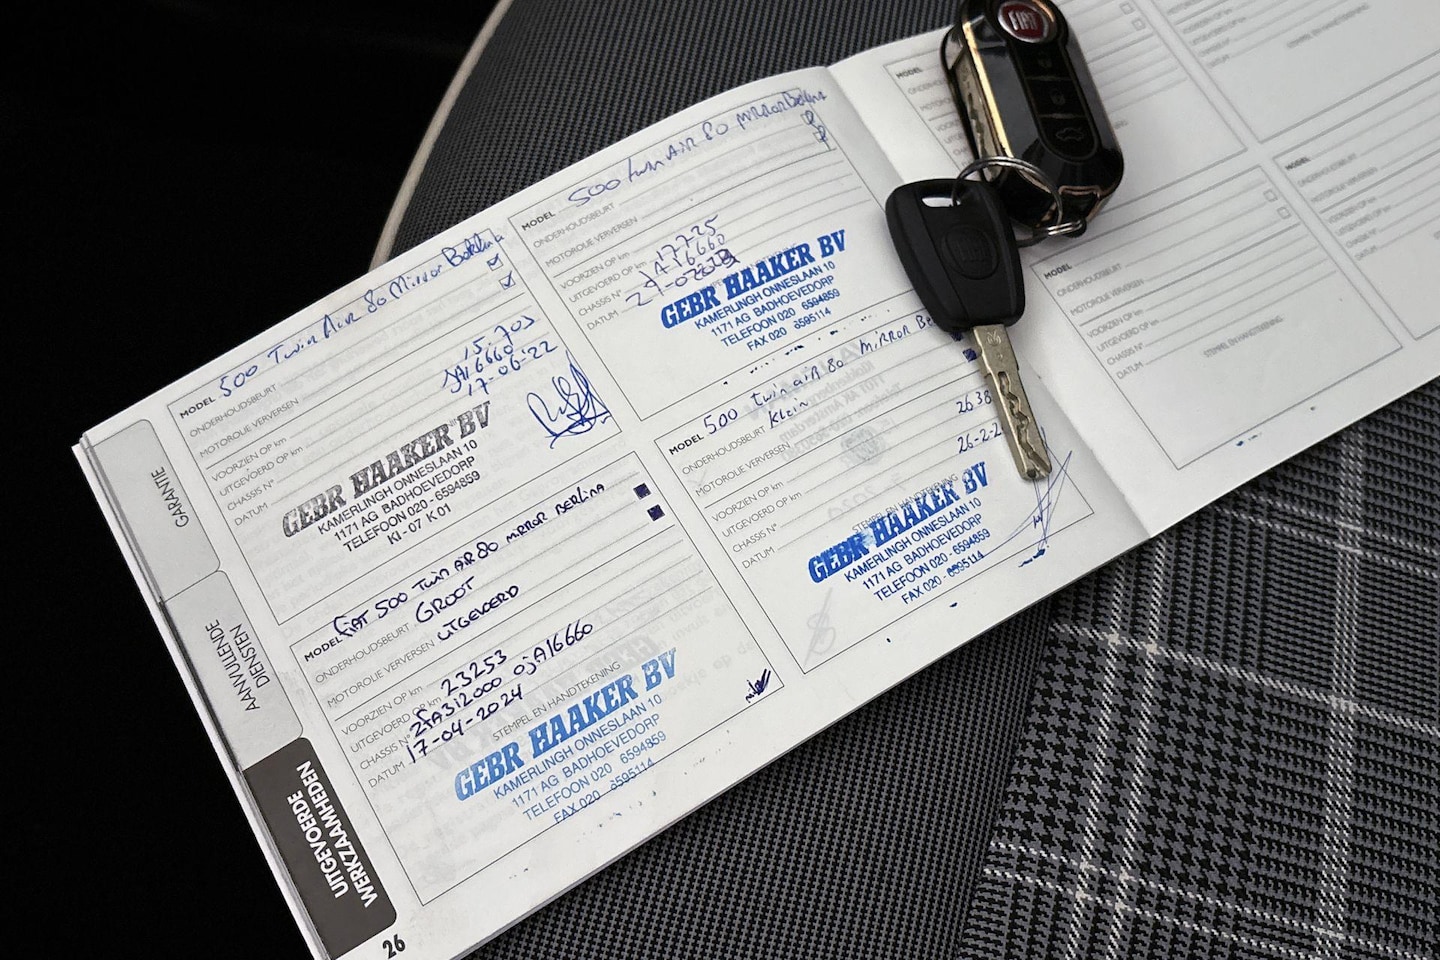 GARANTIE
AANVULLENDE
DIENSTEN
UITGEVOERDE
WERKZAAMHEDEN
26
MODEL 500 Twin Air 80 Mirror Berlina
ONDERHOUDSBEURT
MOTOROLIE VERVERSEN
VOORZIEN OP km
UITGEVOERD OP km 15.703
CHASSIS N° JA16660
DATUM 17-06-22
GEBR HAAKER BV
KAMERLINGH ONNESLAAN 10
1171 AG BADHOEVEDORP
TELEFOON 020 - 6594859
KI - 07 K 01
MODEL FIAT 500 Twin AIR 80 MIRROR BERLINA
ONDERHOUDSBEURT GROOT
MOTOROLIE VERVERSEN UITGEVOERD
VOORZIEN OP km
UITGEVOERD OP km 23253
CHASSIS N° ZFA312000 0JA16660
DATUM 17-04-2024
STEMPEL EN HANDTEKENING
GEBR HAAKER BV
KAMERLINGH ONNESLAAN 10
1171 AG BADHOEVEDORP
TELEFOON 020 6594859
FAX 020 6595114
MODEL 500 twin AIR 80 MIRROR Berlina
ONDERHOUDSBEURT
MOTOROLIE VERVERSEN
VOORZIEN OP km
UITGEVOERD OP km 17725
CHASSIS N° JA16660
DATUM
GEBR HAAKER BV
KAMERLINGH ONNESLAAN 10
1171 AG BADHOEVEDORP
TELEFOON 020 6594859
FAX 020 6595114
MODEL 500 twin aiR 80 MIRROR
ONDERHOUDSBEURT Klein
MOTOROLIE VERVERSEN
VOORZIEN OP km
UITGEVOERD OP km
CHASSIS N°
DATUM
STEMPEL EN HANDTEKENING
GEBR HAAKER BV
KAMERLINGH ONNESLAAN 10
1171 AG BADHOEVEDORP
TELEFOON 020 - 6594859
FAX 020 - 6595114
MODEL
MODEL
ONDERHOUDSBEURT
MOTOROLIE VERVERSEN
VOORZIEN OP km
UITGEVOERD OP km
CHASSIS N°
DATUM
STEMPEL EN HANDTEKENING
MODEL
FIAT